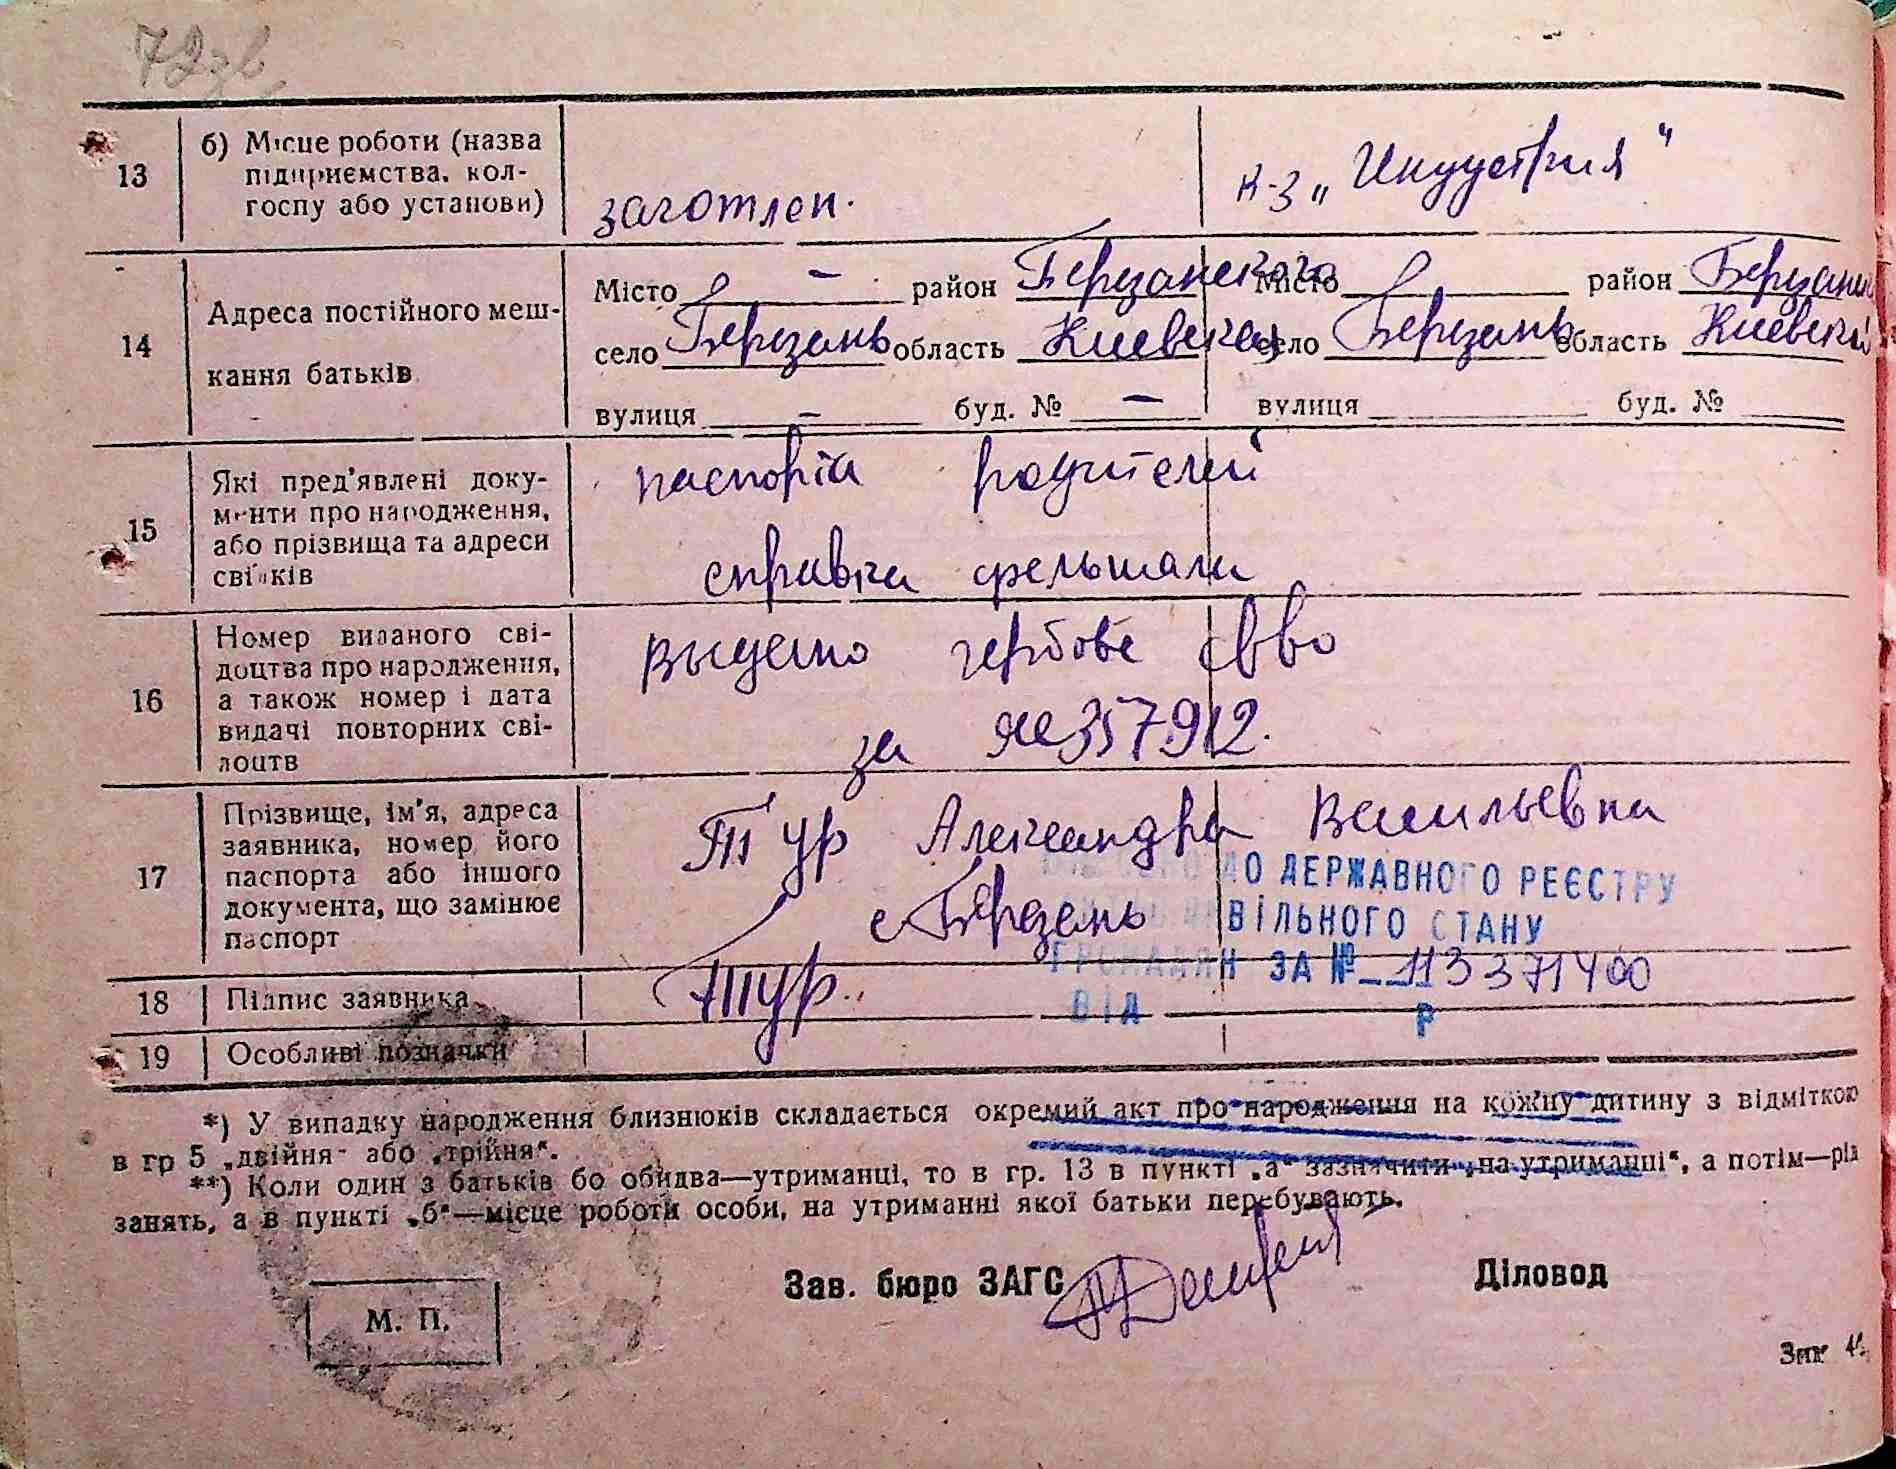 72зв
13 б) Місце роботи (назва
підприємства, кол-
госпу або установи)
заготлен.
к-з „Индустрия"
14 Адреса постійного меш-
кання батьків
Місто – район Березанского
село Березань область Киевская
вулиця – буд. № –
Місто район Березанский
село Березань область Киевской
вулиця буд. №
15 Які пред'явлені доку-
менти про народження,
або прізвища та адреси
свідків
паспорта родителей
справка
16 Номер виданого сві-
доцтва про народження,
а також номер і дата
видачі повторних сві-
доцтв
гербове св во
за 357912.
17 Прізвище, ім'я, адреса
заявника, номер його
паспорта або іншого
документа, що замінює
паспорт
Тур Александра Васильевна
с Березень
ДО ДЕРЖАВНОГО РЕЄСТРУ
ЦИВІЛЬНОГО СТАНУ
ГРОМАДЯН ЗА № 113371400
ВІД Р
18 Підпис заявника
Тур.
19 Особливі позначки
*) У випадку народження близнюків складається окремий акт про народження на кожну дитину з відміткою
в гр 5 „двійня" або „трійня".
**) Коли один з батьків бо обидва—утриманці, то в гр. 13 в пункті „а" зазначити „на утриманні", а потім—рід
занять, а в пункті „б"—місце роботи особи, на утриманні якої батьки перебувають.
Зав. бюро ЗАГС
Діловод
М. П.